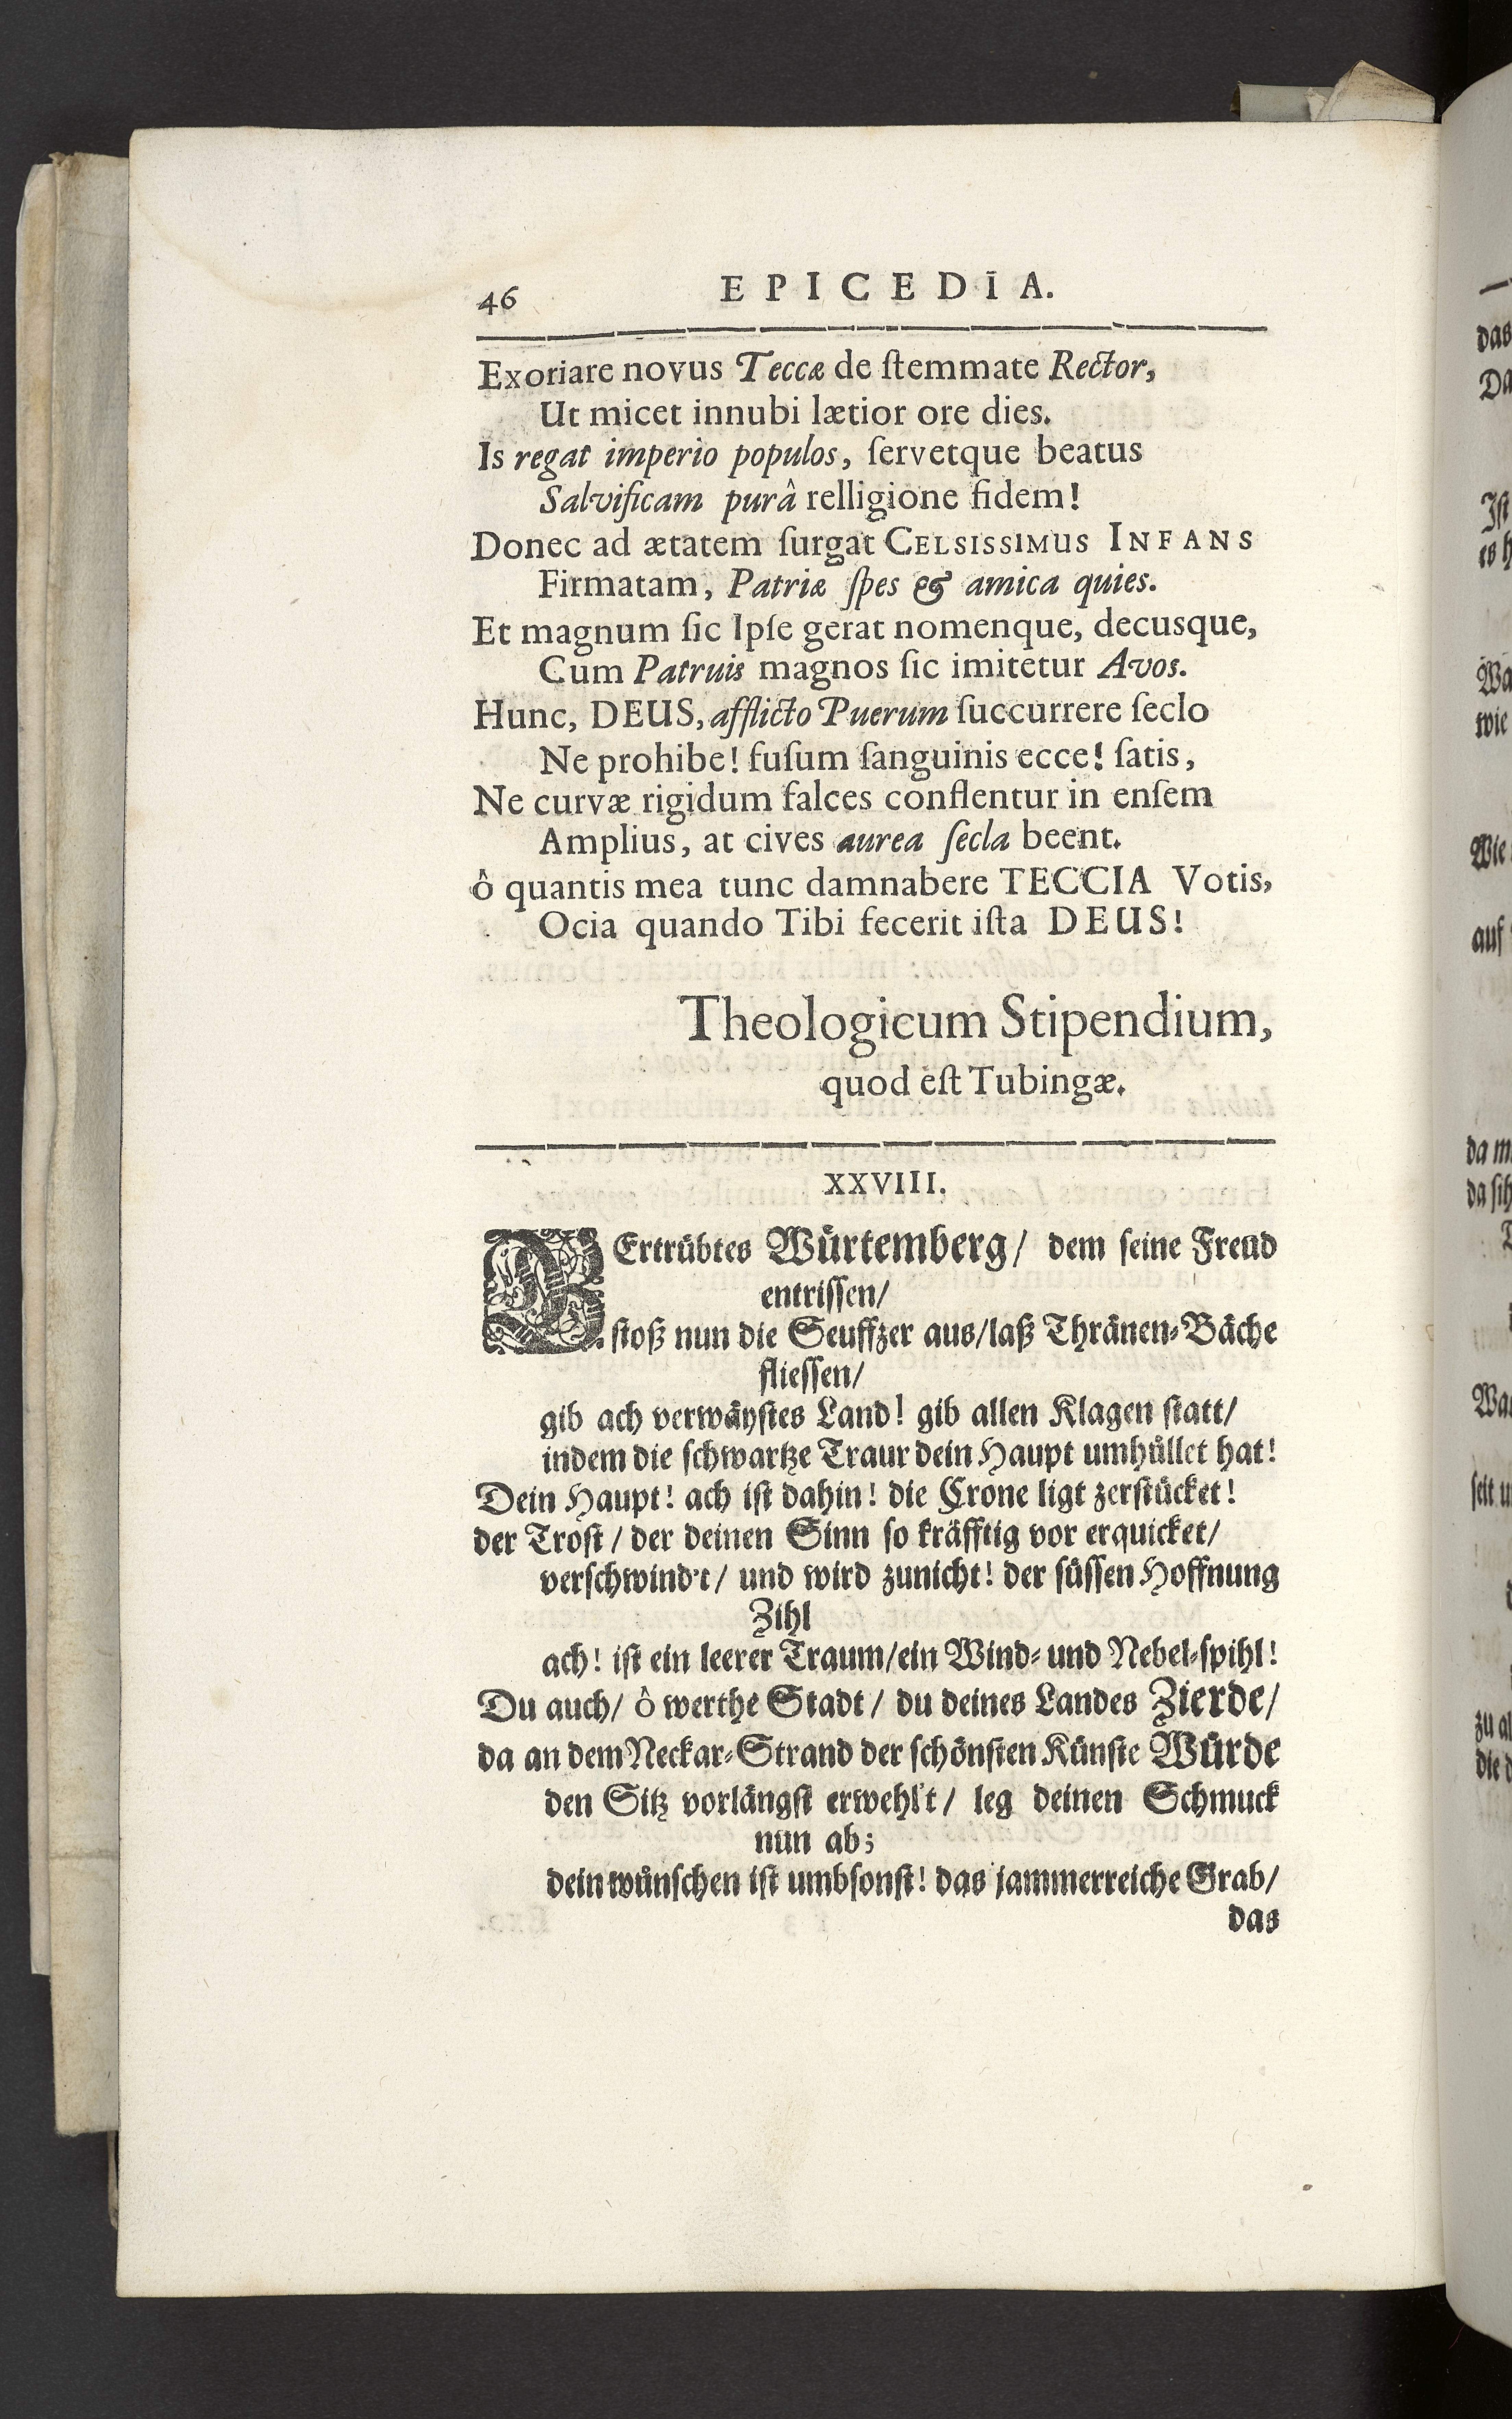 46 EPICEDIA.
Exoriare novus Teccæ de ſtemmate Rector,
Ut micet innubi lætior ore dies.
Is regat imperio populos, ſervetque beatus
Salvificam purâ relligione fidem!
Donec ad ætatem ſurgat CELSISSIMUS INFANS
Firmatam, Patriæ ſpes & amica quies.
Et magnum ſic Ipſe gerat nomenque, decusque,
Cum Patruis magnos ſic imitetur Avos.
Hunc, DEUS, afflicto Puerum ſuccurrere ſeclo
Ne prohibe! fuſum ſanguinis ecce! ſatis,
Ne curvæ rigidum falces conflentur in enſem
Amplius, at cives aurea ſecla beent.
ô quantis mea tunc damnabere TECCIA Votis,
Ocia quando Tibi fecerit iſta DEUS!
Theologicum Stipendium,
quod eſt Tubingæ.
XXVIII.
VErtrübtes Würtemberg/ dem ſeine Freud
entriſſen/
ſtoß nun die Seuffzer aus/laß Thränen-Bäche
flieſſen/
gib ach verwäyſtes Land! gib allen Klagen ſtatt/
indem die ſchwartze Traur dein Haupt umhüllet hat!
Dein Haupt! ach iſt dahin! die Crone ligt zerſtücket!
der Troſt/ der deinen Sinn ſo kräfftig vor erquicket/
verſchwind't/ und wird zunicht! der ſüſſen Hoffnung
Zihl
ach! iſt ein leerer Traum/ein Wind- und Nebel-ſpihl!
Du auch/ ô werthe Stadt/ du deines Landes Zierde/
da an dem Neckar-Strand der ſchönſten Künſte Würde
den Sitz vorlängſt erwehl't/ leg deinen Schmuck
nun ab;
dein wünſchen iſt umbſonſt! das jammerreiche Grab/
das
das
Da
Iſt
es h
Wa
wie
Wie
auf
da m
da ſih
Wa
ſeit u
zu al
die d